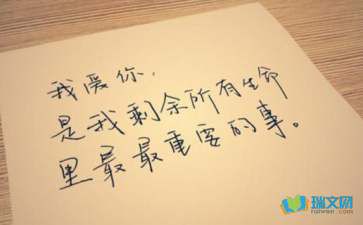 我爱你，
是我剩余所有生命
里最最重要的事。
瑞文网